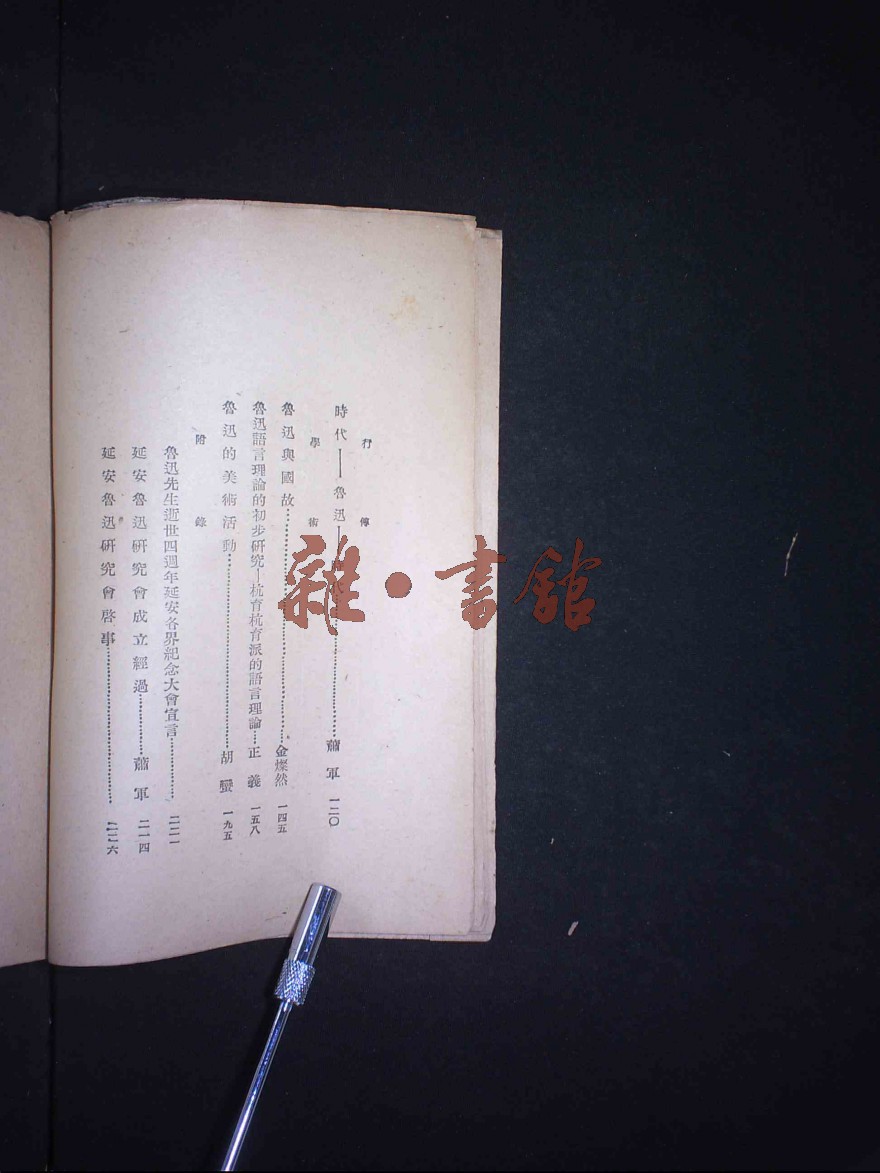 行傳
時代——魯迅——時代…………蕭軍 一二〇
學術
魯迅與國故…………金燦然 一四五
魯迅語言理論的初步研究—杭育杭育派的語言理論……正義 一五八
魯迅的美術活動…………胡蠻 一九五
附錄
魯迅先生逝世四週年延安各界紀念大會宣言…………二二一
延安魯迅研究會成立經過…………蕭軍 二一四
延安魯迅研究會啓事…………二二六
雜·書館